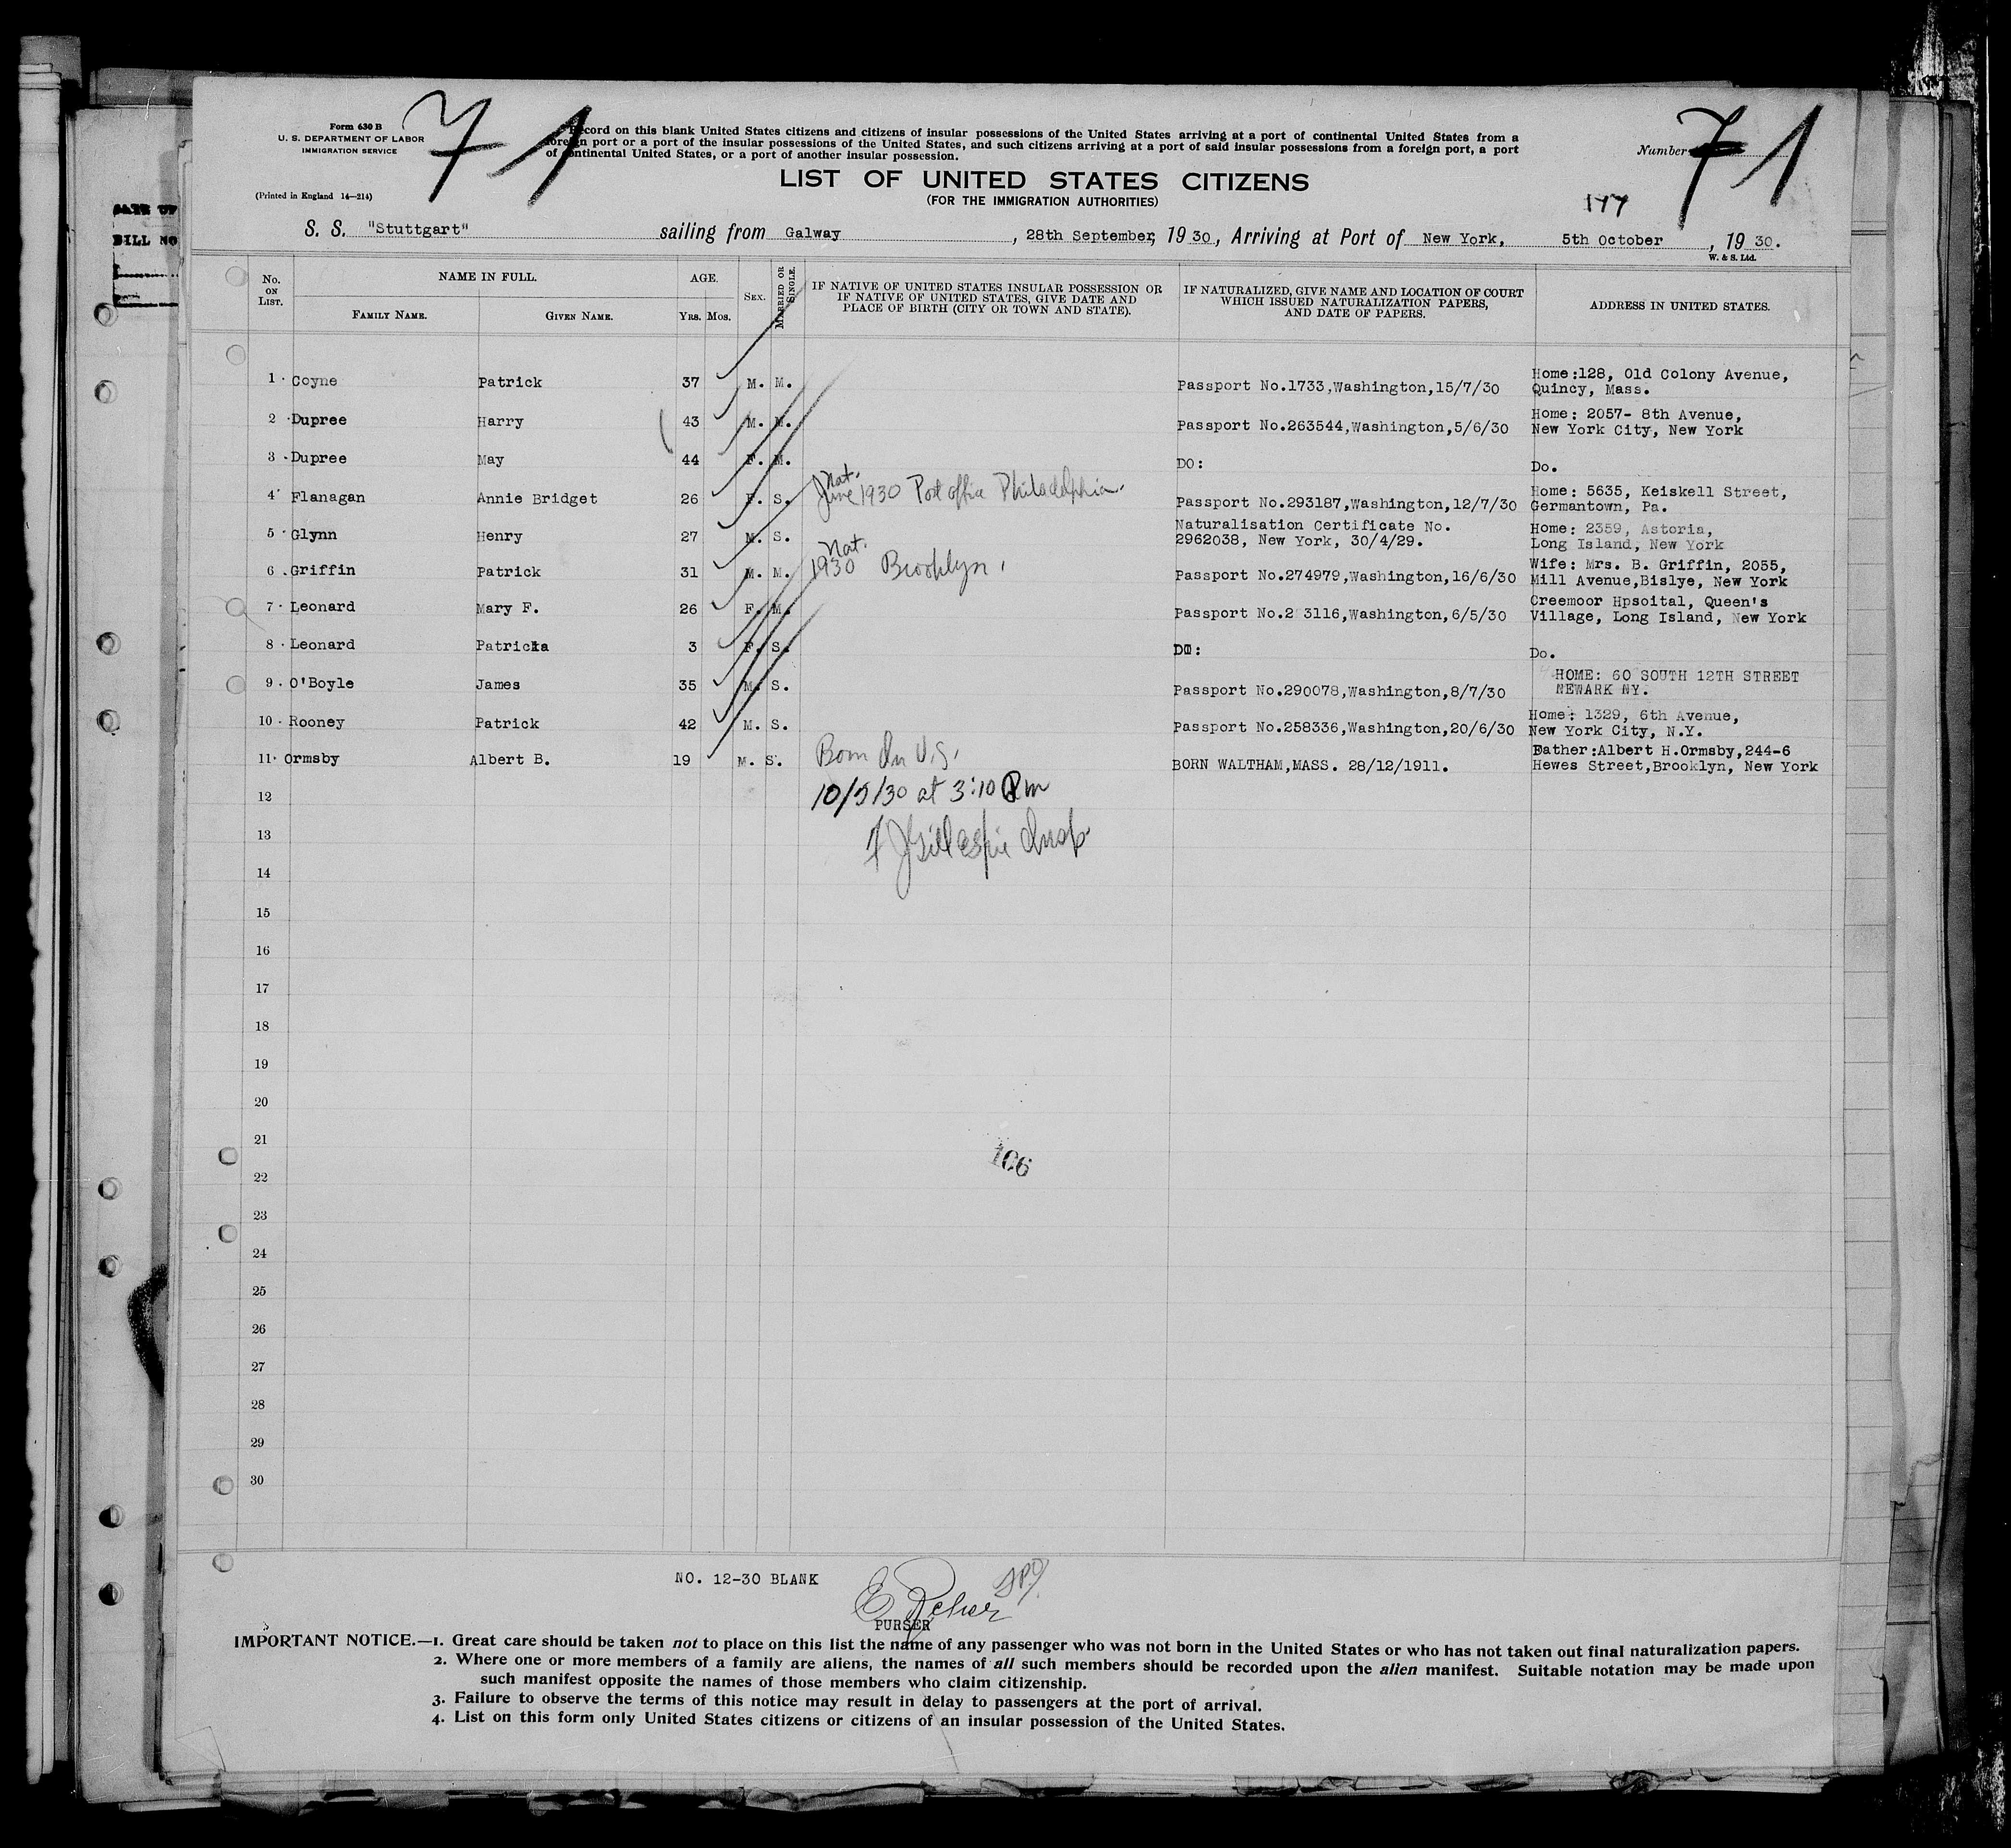 Form 630 B
U. S. DEPARTMENT OF LABOR
IMMIGRATION SERVICE
(Printed in England 14—214)
71
Record on this blank United States citizens and citizens of insular possessions of the United States arriving at a port of continental United States from a
foreign port or a port of the insular possessions of the United States, and such citizens arriving at a port of said insular possessions from a foreign port, a port
of continental United States, or a port of another insular possession.
Number 71
LIST OF UNITED STATES CITIZENS
(FOR THE IMMIGRATION AUTHORITIES)
S. S. "Stuttgart" sailing from Galway, 28th September, 1930, Arriving at Port of New York, 5th October, 1930.
W. & S. Ltd.
DATE OF
BILL NO
No. ON LIST. NAME IN FULL. FAMILY NAME. GIVEN NAME. AGE. YRS. MOS. SEX. MARRIED OR SINGLE. IF NATIVE OF UNITED STATES INSULAR POSSESSION OR IF NATIVE OF UNITED STATES, GIVE DATE AND PLACE OF BIRTH (CITY OR TOWN AND STATE). IF NATURALIZED, GIVE NAME AND LOCATION OF COURT WHICH ISSUED NATURALIZATION PAPERS, AND DATE OF PAPERS. ADDRESS IN UNITED STATES.
1 Coyne Patrick 37 M. M. Passport No.1733,Washington,15/7/30 Home:128, Old Colony Avenue, Quincy, Mass.
2 Dupree Harry 43 M. M. Passport No.263544,Washington,5/6/30 Home: 2057- 8th Avenue, New York City, New York
3 Dupree May 44 F. M. DO: Do.
4 Flanagan Annie Bridget 26 F. S. Nat. June 1930 Post office Philadelphia. Passport No.293187,Washington,12/7/30 Home: 5635, Keiskell Street, Germantown, Pa.
5 Glynn Henry 27 M. S. Naturalisation Certificate No. 2962038, New York, 30/4/29. Home: 2359, Astoria, Long Island, New York
6 Griffin Patrick 31 M. M. Nat. 1930 Brooklyn. Passport No.274979,Washington,16/6/30 Wife: Mrs. B. Griffin, 2055, Mill Avenue,Bislye, New York
7 Leonard Mary F. 26 F. M. Passport No.2 3116,Washington,6/5/30 Creemoor Hpsoital, Queen's Village, Long Island, New York
8 Leonard Patricia 3 F. S. DO: Do.
9 O'Boyle James 35 M. S. Passport No.290078,Washington,8/7/30 HOME: 60 SOUTH 12TH STREET NEWARK NY.
10 Rooney Patrick 42 M. S. Passport No.258336,Washington,20/6/30 Home: 1329, 6th Avenue, New York City, N.Y.
11 Ormsby Albert B. 19 M. S. Born In U.S. BORN WALTHAM,MASS. 28/12/1911. Father:Albert H.Ormsby,244-6 Hewes Street,Brooklyn, New York
12 10/5/30 at 3:10 Pm
13 J Gillespie Insp.
14
15
16
17
18
19
20
21
106
22
23
24
25
26
27
28
29
30
NO. 12-30 BLANK
PURSER
IMPORTANT NOTICE.—1. Great care should be taken not to place on this list the name of any passenger who was not born in the United States or who has not taken out final naturalization papers.
2. Where one or more members of a family are aliens, the names of all such members should be recorded upon the alien manifest. Suitable notation may be made upon
such manifest opposite the names of those members who claim citizenship.
3. Failure to observe the terms of this notice may result in delay to passengers at the port of arrival.
4. List on this form only United States citizens or citizens of an insular possession of the United States.